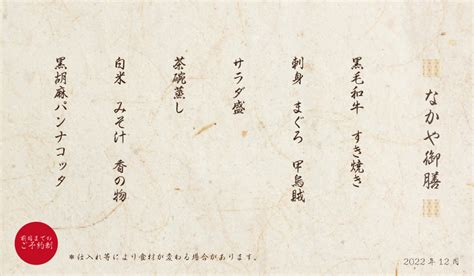 なかや御膳
黒毛和牛　すき焼き
刺身　まぐろ　甲烏賊
サラダ盛
茶碗蒸し
白米　みそ汁　香の物
黒胡麻パンナコッタ
前日までの
ご予約制
※仕入れ等により食材が変わる場合があります。
2022年12月